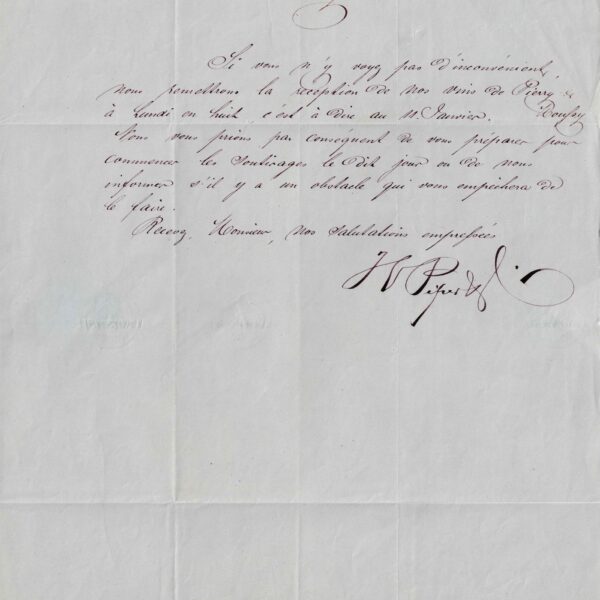 Si vous n'y voyez pas d'inconvénient,
nous remettrons la réception de nos vins de Pierry &
à Lundi en huit, c'est à dire au 11 Janvier.
Nous vous prions par conséquent de vous préparer pour
commencer les soutirages le dit jour ou de nous
informer s'il y a un obstacle qui vous empêchera de
le faire.
Recevez, Monsieur, nos salutations empressées